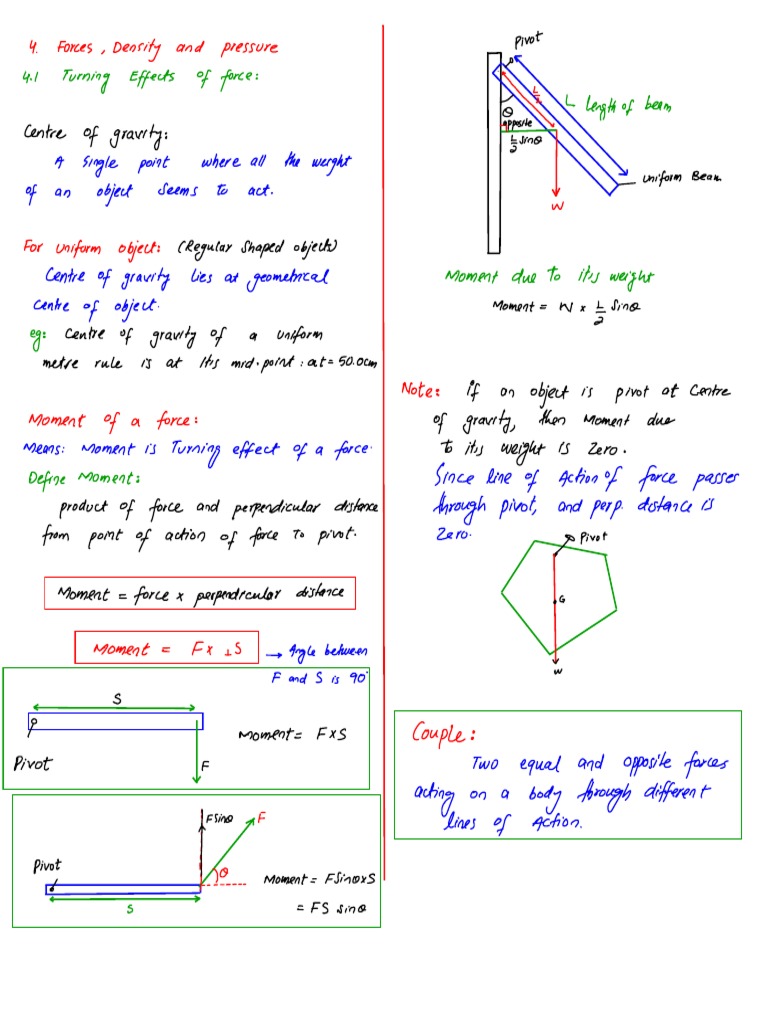 4. Forces, Density and pressure
4.1 Turning Effects of force:
Centre of gravity:
A single point where all the weight
of an object seems to act.
For uniform object: (Regular shaped objects)
Centre of gravity lies at geometrical
centre of object.
eg: Centre of gravity of a uniform
metre rule is at it's mid-point: at = 50.0cm
Moment of a force:
Means: Moment is Turning effect of a force.
Define Moment:
product of force and perpendicular distance
from point of action of force to pivot.
Moment = force x perpendicular distance
Moment = F x ⊥ S → Angle between
F and S is 90°
S
Moment = F x S
Pivot
F
F sinθ
F
Pivot
θ
Moment = F sinθ x S
S
= FS sinθ
Pivot
L/2
L length of beam
θ
opposite
L/2 sinθ
uniform Beam
W
Moment due to it's weight
Moment = W x L/2 sinθ
Note: if an object is pivot at centre
of gravity, then Moment due
to it's weight is zero.
Since line of Action of force passes
through pivot, and perp. distance is
zero.
Pivot
G
W
Couple:
Two equal and opposite forces
acting on a body through different
lines of Action.